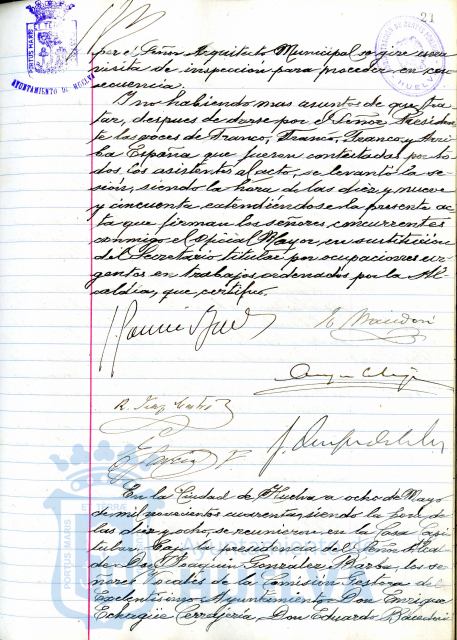 21
PORTUS MARIS
AYUNTAMIENTO DE HUELVA
por el Señor Arquitecto Municipal se gire una
visita de inspección para proceder en con
secuencia.
Y no habiendo mas asuntos de que tra
tar, despues de darse por el Señor Presiden
te las voces de Franco, Franco, Franco, y Arri
ba España que fueron contestadas por to
dos los asistentes al acto, se levantó la se
sión, siendo la hora de las diez y nueve
y cincuenta extendiéndose la presente ac
ta que firman los señores concurrentes
conmigo el Oficial Mayor, en sustitución
del Secretario titular por ocupaciones ur
gentes en trabajos ordenados por la Al
caldía, que certifico.
En la Ciudad de Huelva a ocho de Mayo
de mil novecientos cuarenta, siendo la hora de
las diez y ocho, se reunieron en la Casa Capi
tular, bajo la presidencia del Señor Alcal
de Don Joaquín González Barba, los se
ñores Vocales de la Comisión Gestora del
Excelentísimo Ayuntamiento Don Enrique
Echagüe Cerrejería, Don Eduardo
PORTUS MARIS
Ayuntamiento de